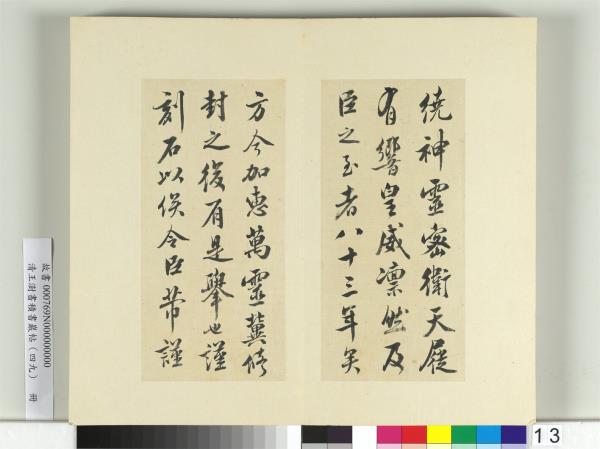 繞神靈密衛天屐
有響皇威凛然及
臣之至者八十三年矣
方今加惠萬靈冀脩
封之後有是舉也謹
刻石以俟令臣芾謹
故書 000769N000000000
清王澍書積書巖帖（四九） 冊
13